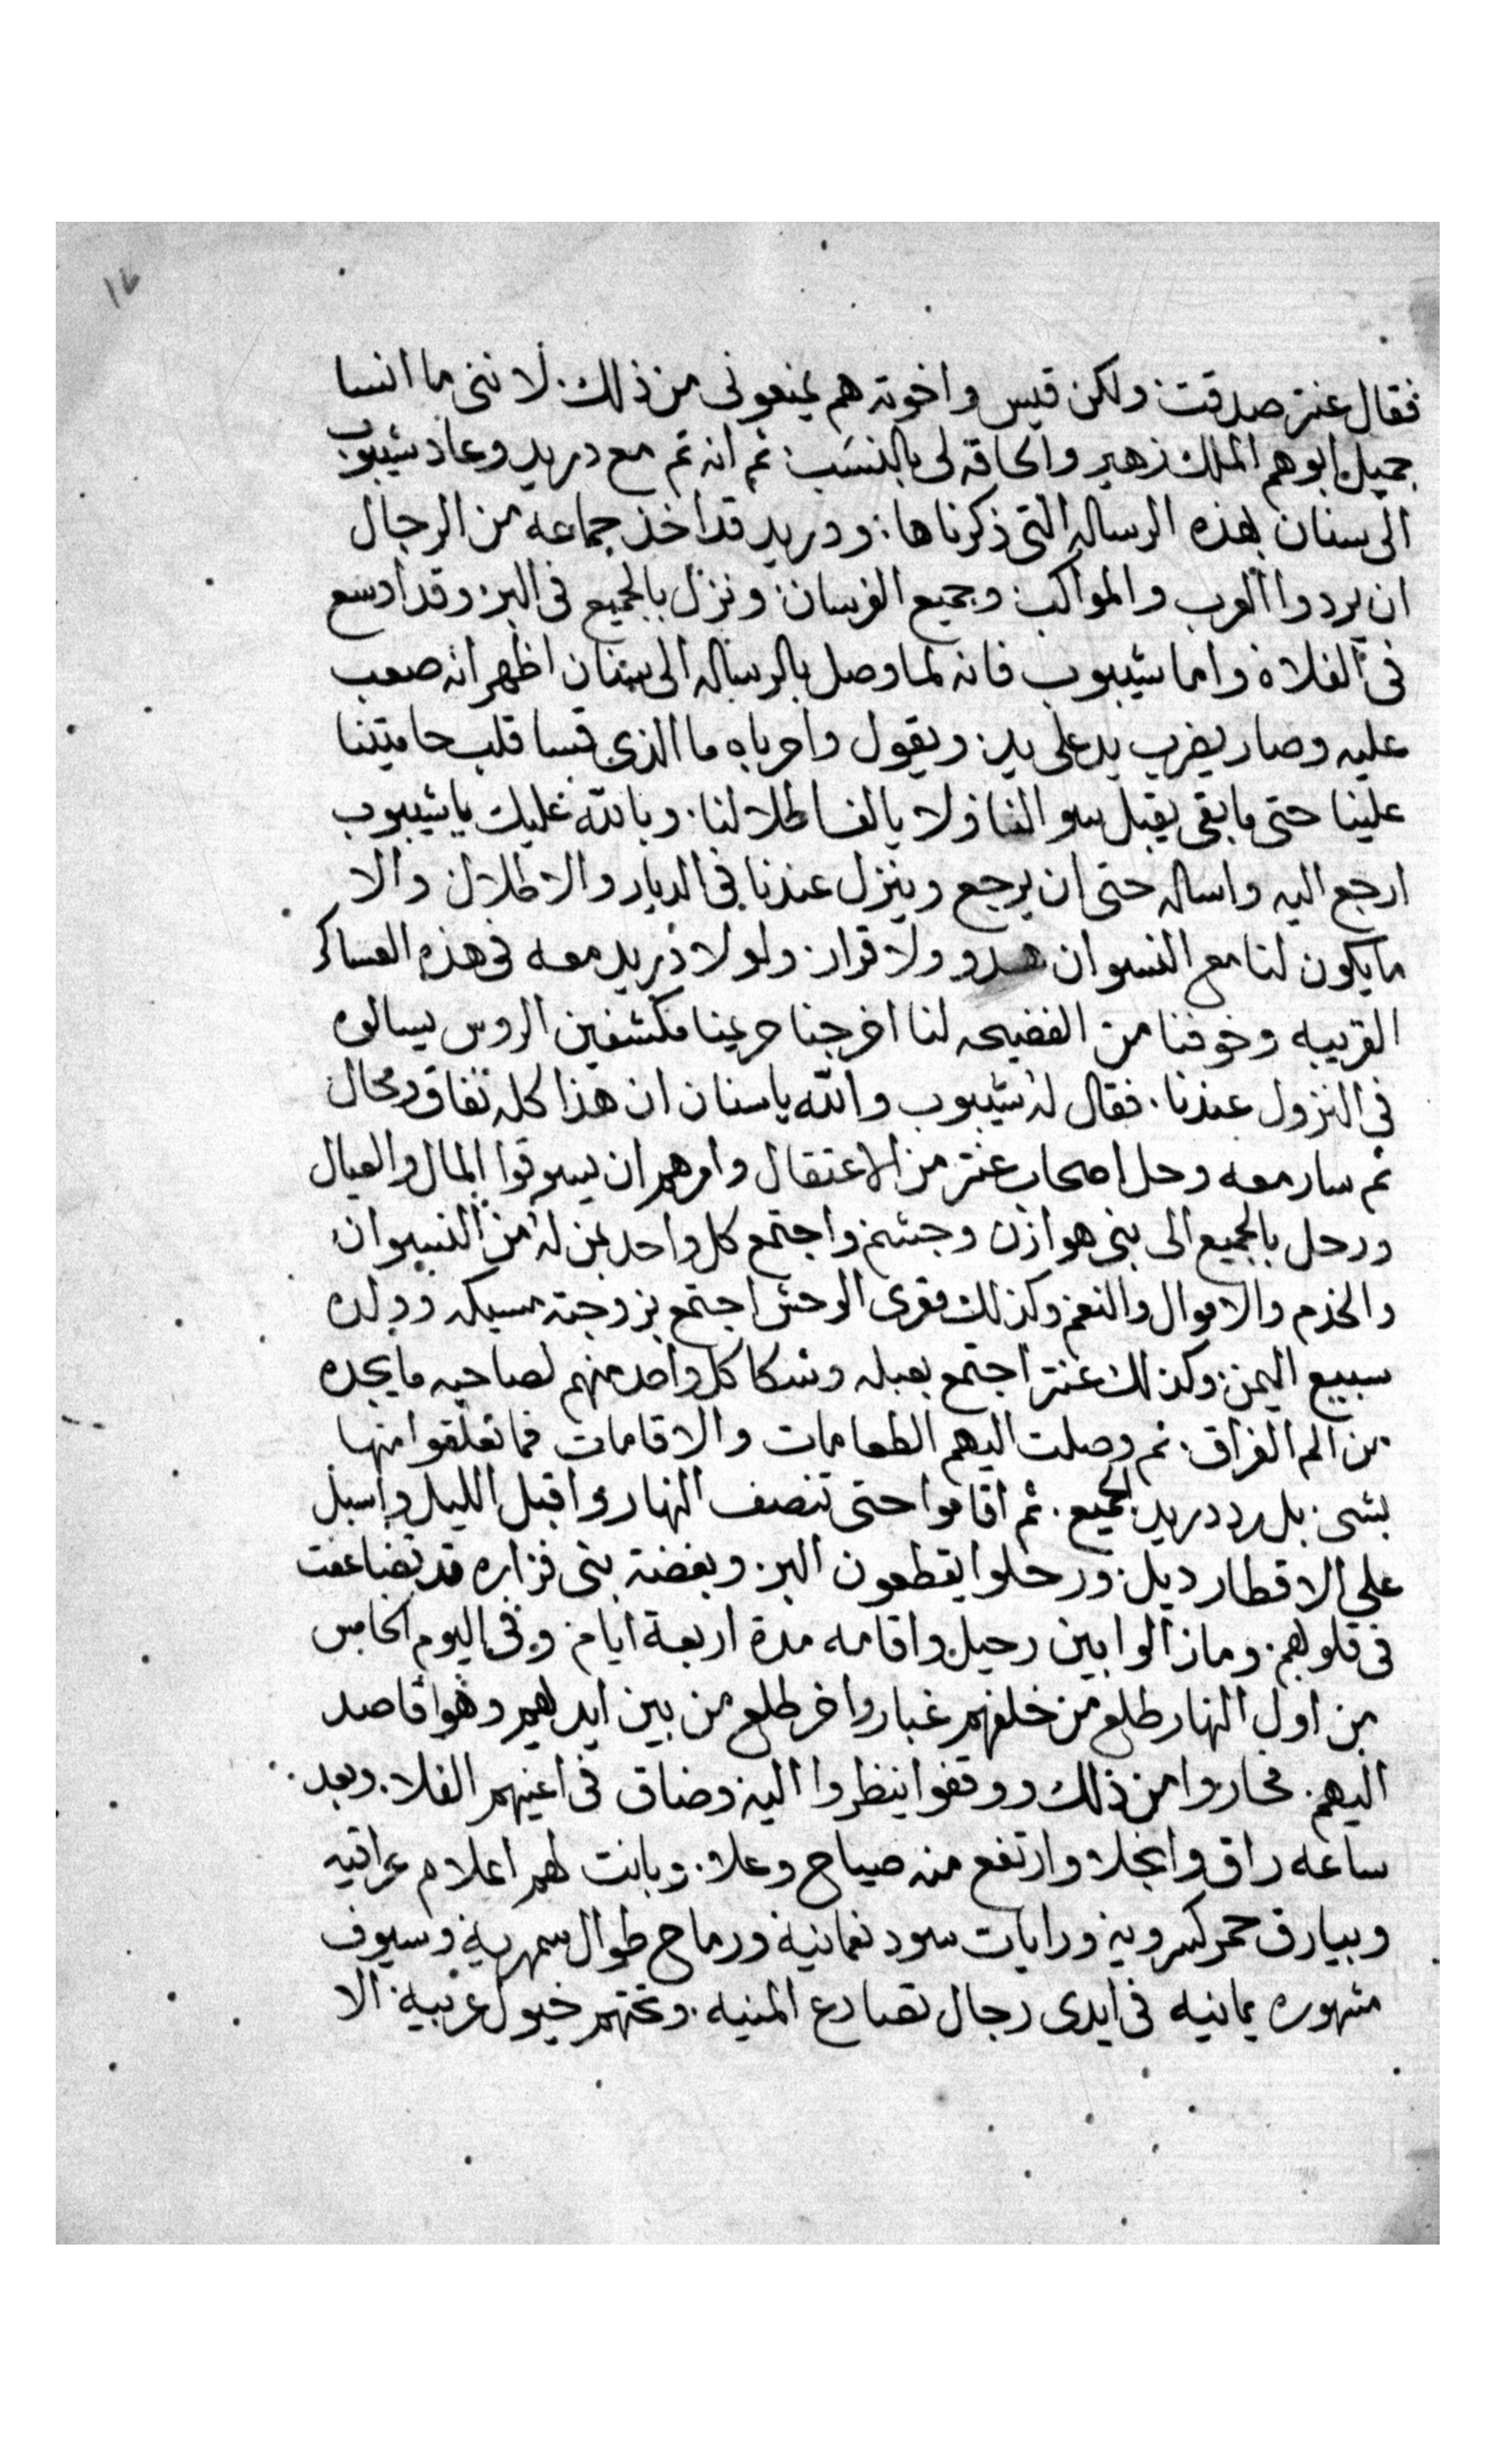 ١٧
فقال عنتر صدقت ولكن قيس واخوته هم يمنعونى من ذلك لاننى ما انسا
جميل ابوهم الملك زهير والحاقه لى بالنسب ثم انه تم مع دريد وعاد شيبوب
الى سنان بهذه الرساله التى ذكرناها ودريد قد اخذ جماعه من الرجال
ان يردوا العرب والمواكب وجميع الفرسان ونزل بالجميع فى البر وقد اوسع
فى الفلاة واما شيبوب فانه لما وصل بالرساله الى سنان اظهر انه صعب
عليه وصار يضرب يد على يد ويقول واحرباه ما الذى قسا قلب حاميتنا
علينا حتى ما بقى يقبل سوالنا ولا يالف اطلالنا وبالله عليك يا شيبوب
ارجع اليه واساله حتى ان يرجع وينزل عندنا فى الديار والاطلال والا
ما يكون لنا مع النسوان هدو ولا قرار ولولا دريد معه فى هذه العساكر
القريبه وخوفنا من الفضيحه لنا اخرجنا حريمنا مكشفين الروس يسالوه
فى النزول عندنا فقال له شيبوب والله يا سنان ان هذا كله نفاق ومحال
ثم سار معه وحل اصحاب عنتر من الاعتقال وامرهم ان يسوقوا المال والعيال
ورحل بالجميع الى بنى هوازن وجشم واجتمع كل واحد بمن له من النسوان
والخدم والاموال والنعم وكذلك مقرى الوحش اجتمع بزوجته مسيكه وولده
سبيع اليمن وكذلك عنتر اجتمع بعبله وشكا كل واحد منهم لصاحبه ما يجده
من الم الفراق ثم وصلت اليهم الطعامات والاقامات فما تعلقوا منها
بشى بل رد دريد الجميع ثم اقاموا حتى تنصف النهار واقبل الليل واسبل
على الاقطار ديل ورحلوا يقطعون البر وبغضة بنى فزاره قد تضاعفت
فى قلوبهم وما زالوا بين رحيل واقامه مدة اربعة ايام وفى اليوم الخامس
من اول النهار طلع من خلفهم غبار واخر طلع من بين ايديهم وهوا قاصد
اليهم فحاروا من ذلك ووقفوا ينظروا اليه وضاق فى اعينهم الفلا وبعد
ساعه راق وانجلا وارتفع منه صياح وعلا وبانت لهم اعلام عراقيه
وبيارق حمر كسرويه ورايات سود نعمانية ورماح طوال سمهرية وسيوف
مشهوره يمانيه فى ايدى رجال تصادع المنيه وتحتهم خيول عربية الا